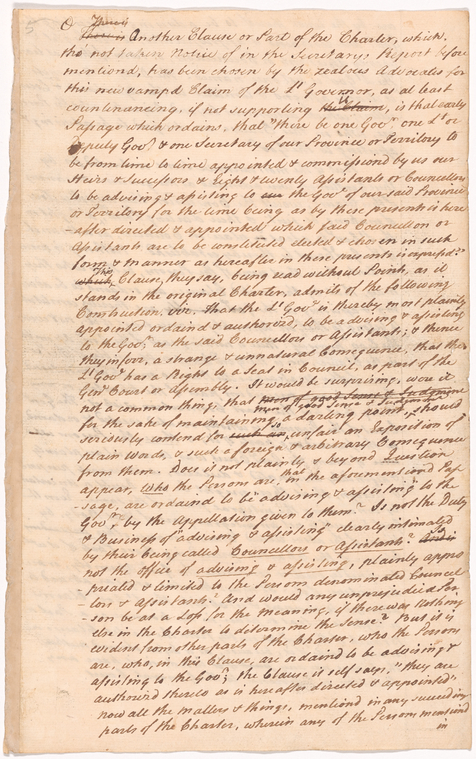 There is
There is Another Clause or Part of the Charter, which,
tho' not taken Notice of in the Secretary's Report before
mentiond, has been chosen by the zealous Advocates for
this new vamp'd Claim of the Lt Governor, as at least
countenancing, if not supporting the Claim, is that early
Passage which ordains, that "there be one Govr one Lt or
Deputy Govr & one Secretary of our Province or Territory to
be from time to time appointed & commissiond by us our
Heirs & Successors & Eight & twenty Assistants or Councellors
to be advising & assisting to our the Govr of our said Province
or Territory for the time being as by these presents is here
-after directed & appointed which said Councellors or
Assistants are to be constituted elected & chosen in such
form & manner as hereafter in these presents is expressd."
which This Clause, they say, being read without Points, as it
stands in the original Charter, admits of the following
Construction, viz. That the Lt Govr is thereby most plainly
appointed ordaind & authorizd, to be advising & assisting
to the Govr, as the said Councellors or Assistants; & thence
they infer, a strange & unnatural Consequence, that the
Lt Govr has a Right to a Seat in Council, as part of the
Genl Court or Assembly. It would be surprizing, were it
not a common thing, that men of good Sense & Judgment
men of good Sense & Judgment
for the sake of maintaining a darling point, should
seriously contend for such an so unfair an Exposition of
plain words, & such a foreign & arbitrary Consequence
from them. Does it not plainly & beyond Question
appear, Who the Persons are, that in the aforementiond Pas
sage, are ordaind to be "advising & assisting" to the
Govr, by the Appellation given to them? Is not the Duty
& Business of "advising & assisting" clearly intimated
by their being called Councellors or Assistants? And is
not the office of advising & assisting, plainly appro
-priated & limited to the Persons denominated Council
-lors & Assistants? And would any unprejudiced Per
-son be at a Loss for the meaning, if there was Nothing
else in the Charter to determine the Sense? But it is
evident from other parts of the Charter, who the Persons
are, who, in this Clause, are ordaind to be advising &
assisting to the Govr; the Clause itself says, "they are
authorizd thereto as is hereafter directed & appointed"
now all the matters & things, mentiond in any succeeding
parts of the Charter, wherein any of the Persons mentiond
in